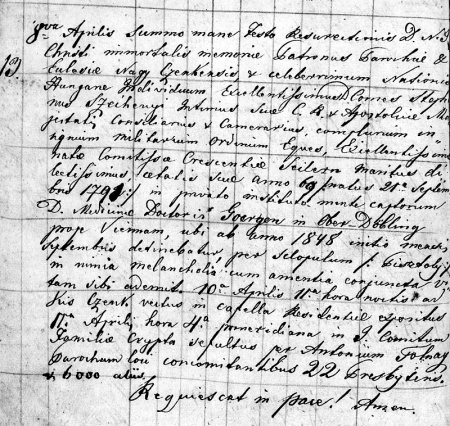 8va Aprilis Summo mane Festo Resurectionis D. N. J.
13. Christi immortalis memoriae Patronus Parochiae &
Eclesiae Nagy Czenkensis & celeberrimum Nationis
Hungarae Individuum Excellentissimus Comes Stepha
nus Szechenyi Intimus Suae C. R. & Apostolicae Ma
jestatis Consiliarius & Camerarius, complurium in
signium militarium Ordinum Eques, Excellentissimae
natae Comitissae Crescentiae Seilern maritus di
lectissimus, aetatis suae anno 69 /: natus 21a Septem
bris 1791 :/ in privato instituto mente captorum
D. Medicinae Doctoris Goergen in Ober Döbling
prope Viennam, ubi ab anno 1848 initio mensis
Septembris detinebatur, per Sclopulum /: Pisztoly :/
in nimia melancholia cum amentia conjuncta Vi
tam sibi ademit. 10a Aprilis 11a hora noctis ad
Kis Czenk vectus in capella Residentiae expositus
11a Aprilis hora 4a pomeridiana in J. Comitum
Familiae Crypta sepultus per Antonium Tolnay
Parochum loci concomitantibus 22 Presbyteris
& 6000 aliis,
Requiescat in pace! Amen.